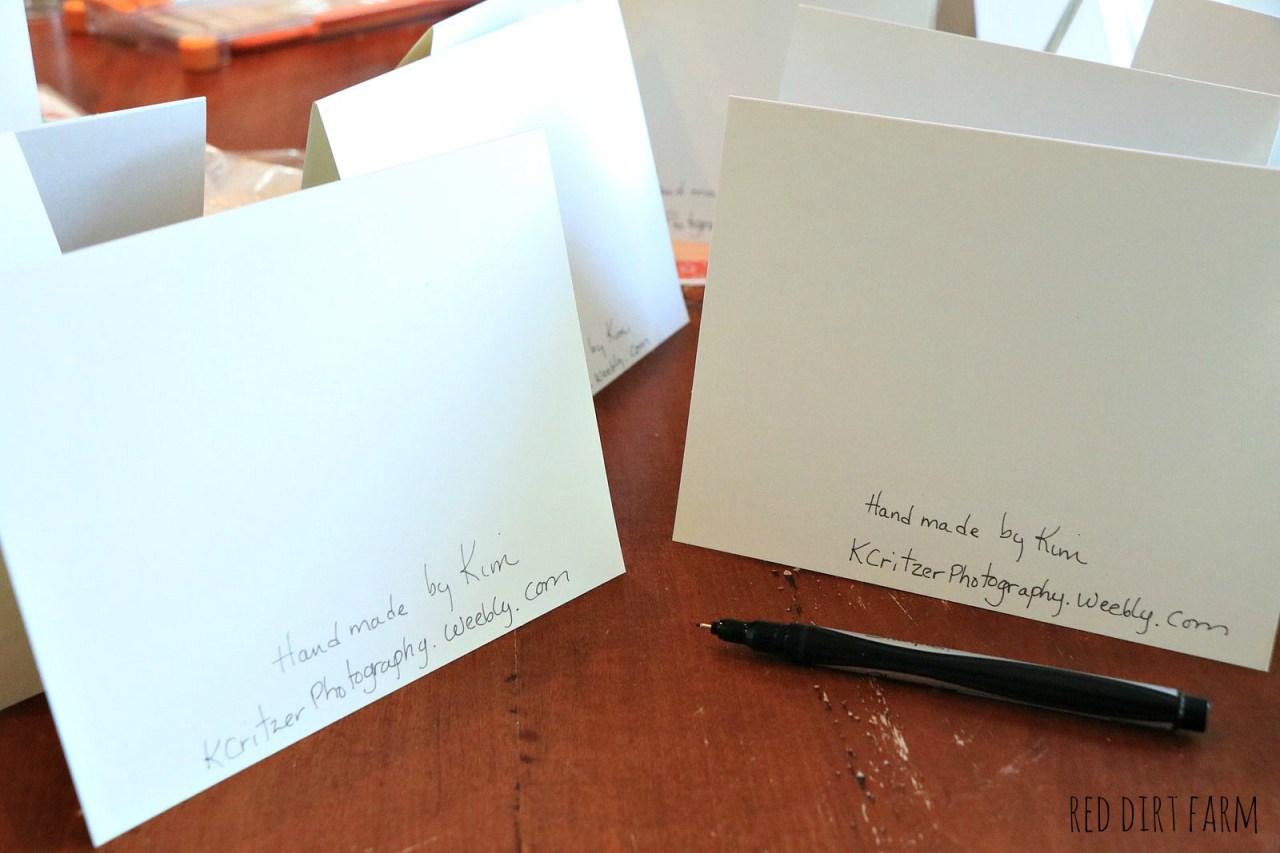 Handmade by Kim
KCritzerPhotography.weebly.com
by Kim
.weebly.com
Handmade by Kim
KCritzerPhotography.weebly.com
RED DIRT FARM